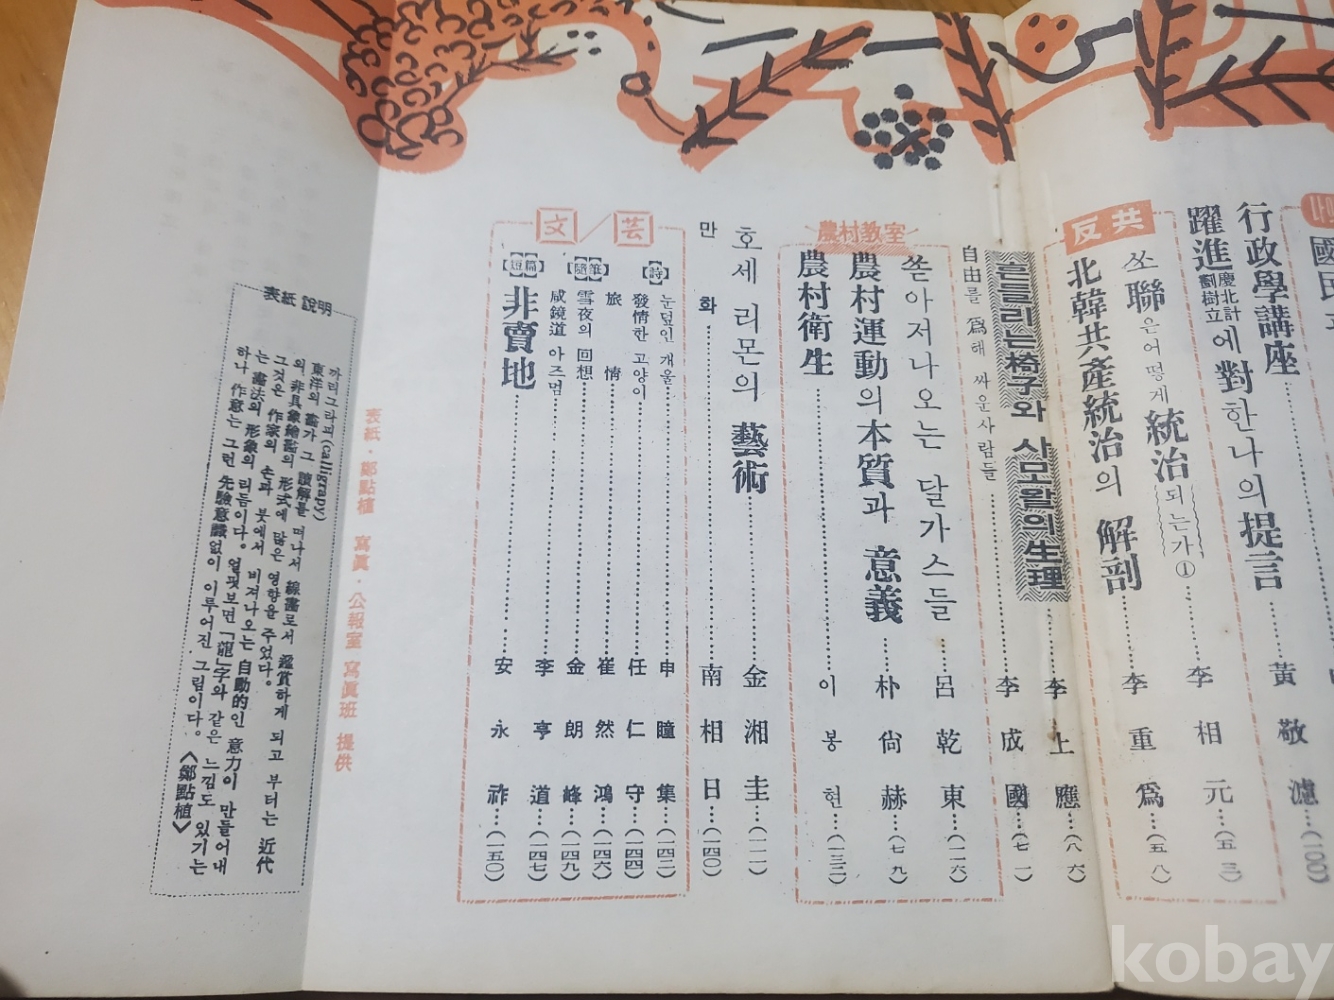 行政學講座……黃敬濂…(一〇〇)
躍進慶北計劃樹立에 對한 나의 提言
反共
쏘聯은 어떻게 統治되는가①……李相元…(五三)
北韓共產統治의 解剖……李重爲…(五八)
흔들리는 椅子와 사모왈의 生理…李上應…(八六)
自由를 爲해 싸운 사람들……李成國…(七一)
農村教室
쏟아저나오는 달가스들…呂乾東…(一一六)
農村運動의 本質과 意義……朴尙赫…(七九)
農村衛生……이봉현…(一三二)
호세 리몬의 藝術……金湘圭…(一一一)
만화……南相日…(一四〇)
文/芸
【詩】
눈덮인 개울……申瞳集…(一四二)
發情한 고양이……任仁守…(一四四)
【隨筆】
旅情……崔然鴻…(一四六)
雪夜의 回想……金朗峰…(一四九)
咸鏡道 아즈멈……李亨道…(一四七)
【短篇】
非賣地……安永祚…(一五〇)
表紙・鄭點植 寫眞・公報室 寫眞班 提供
表紙 說明
까리그라피(calligrapy)
東洋의 畵가 그 讀解를 떠나서 線畵로서 鑑賞하게 되고 부터는 近代
의 非具象繪畵의 形式에 많은 영향을 주었다.
그것은 作家의 손과 붓에서 비져나오는 自動的인 意力이 만들어내
는 畵法의 形象의 리듬이다. 얼핏보면 「龍」字와 같은 느낌도 있기는
하나 作意는 그런 先驗意識없이 이루어진 그림이다. 〈鄭點植〉
kobay